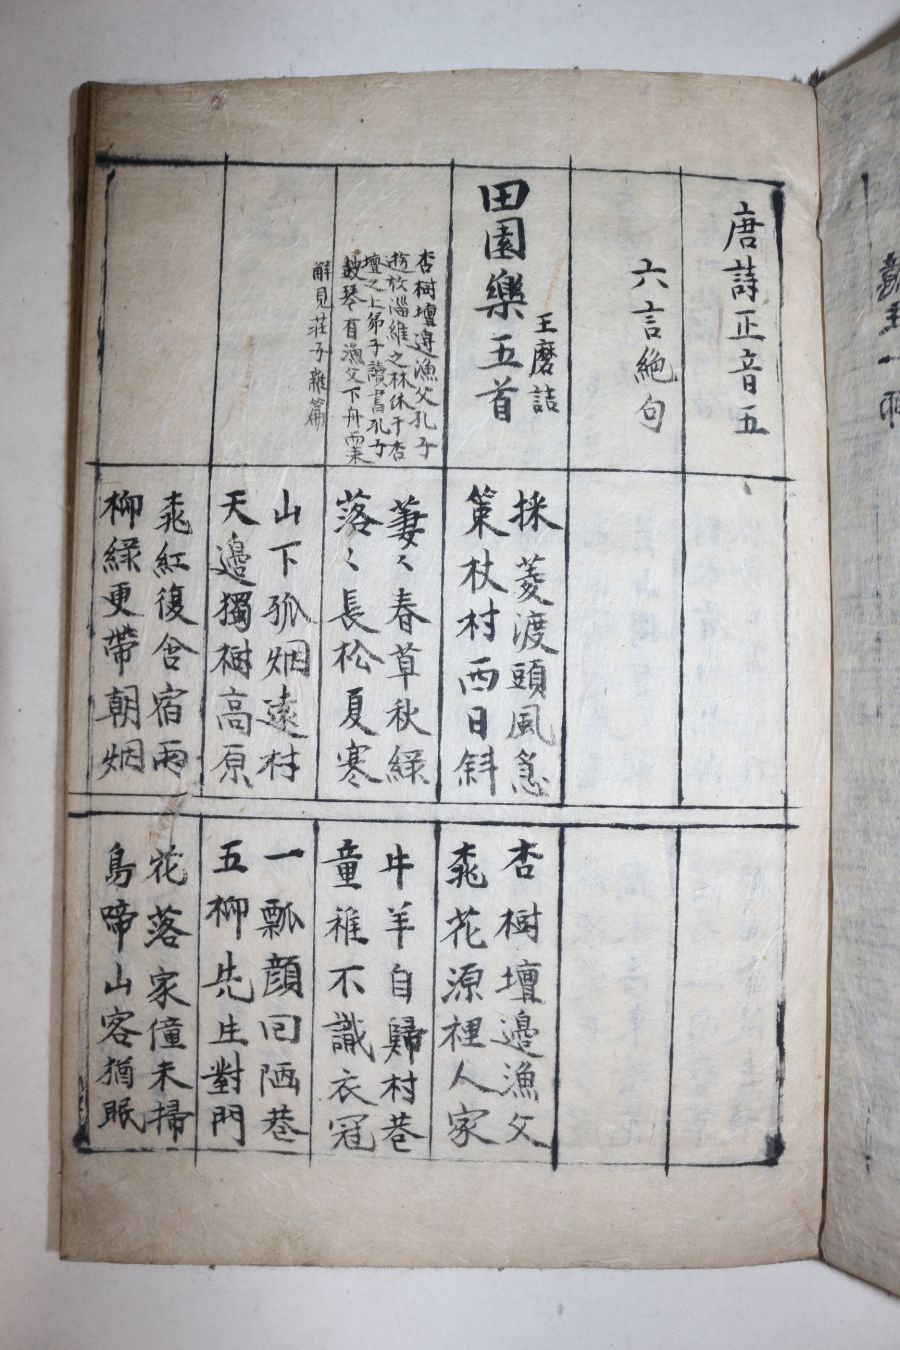 唐詩正音五
六言絶句
田園樂五首
王磨詰
採菱渡頭風急
策杖村西日斜
杏樹壇邊漁父
桃花源裡人家
杏樹壇邊漁父孔子
遊於淄維之林休于杏
壇之上弟子讀書孔子
鼓琴有漁父下舟而來
解見莊子雜篇
萋〻春草秋綠
落〻長松夏寒
牛羊自歸村巷
童稚不識衣冠
山下孤烟遠村
天邊獨樹高原
一瓢顔回陋巷
五柳先生對門
桃紅復含宿雨
柳綠更帶朝烟
花落家僮未掃
鳥啼山客猶眠